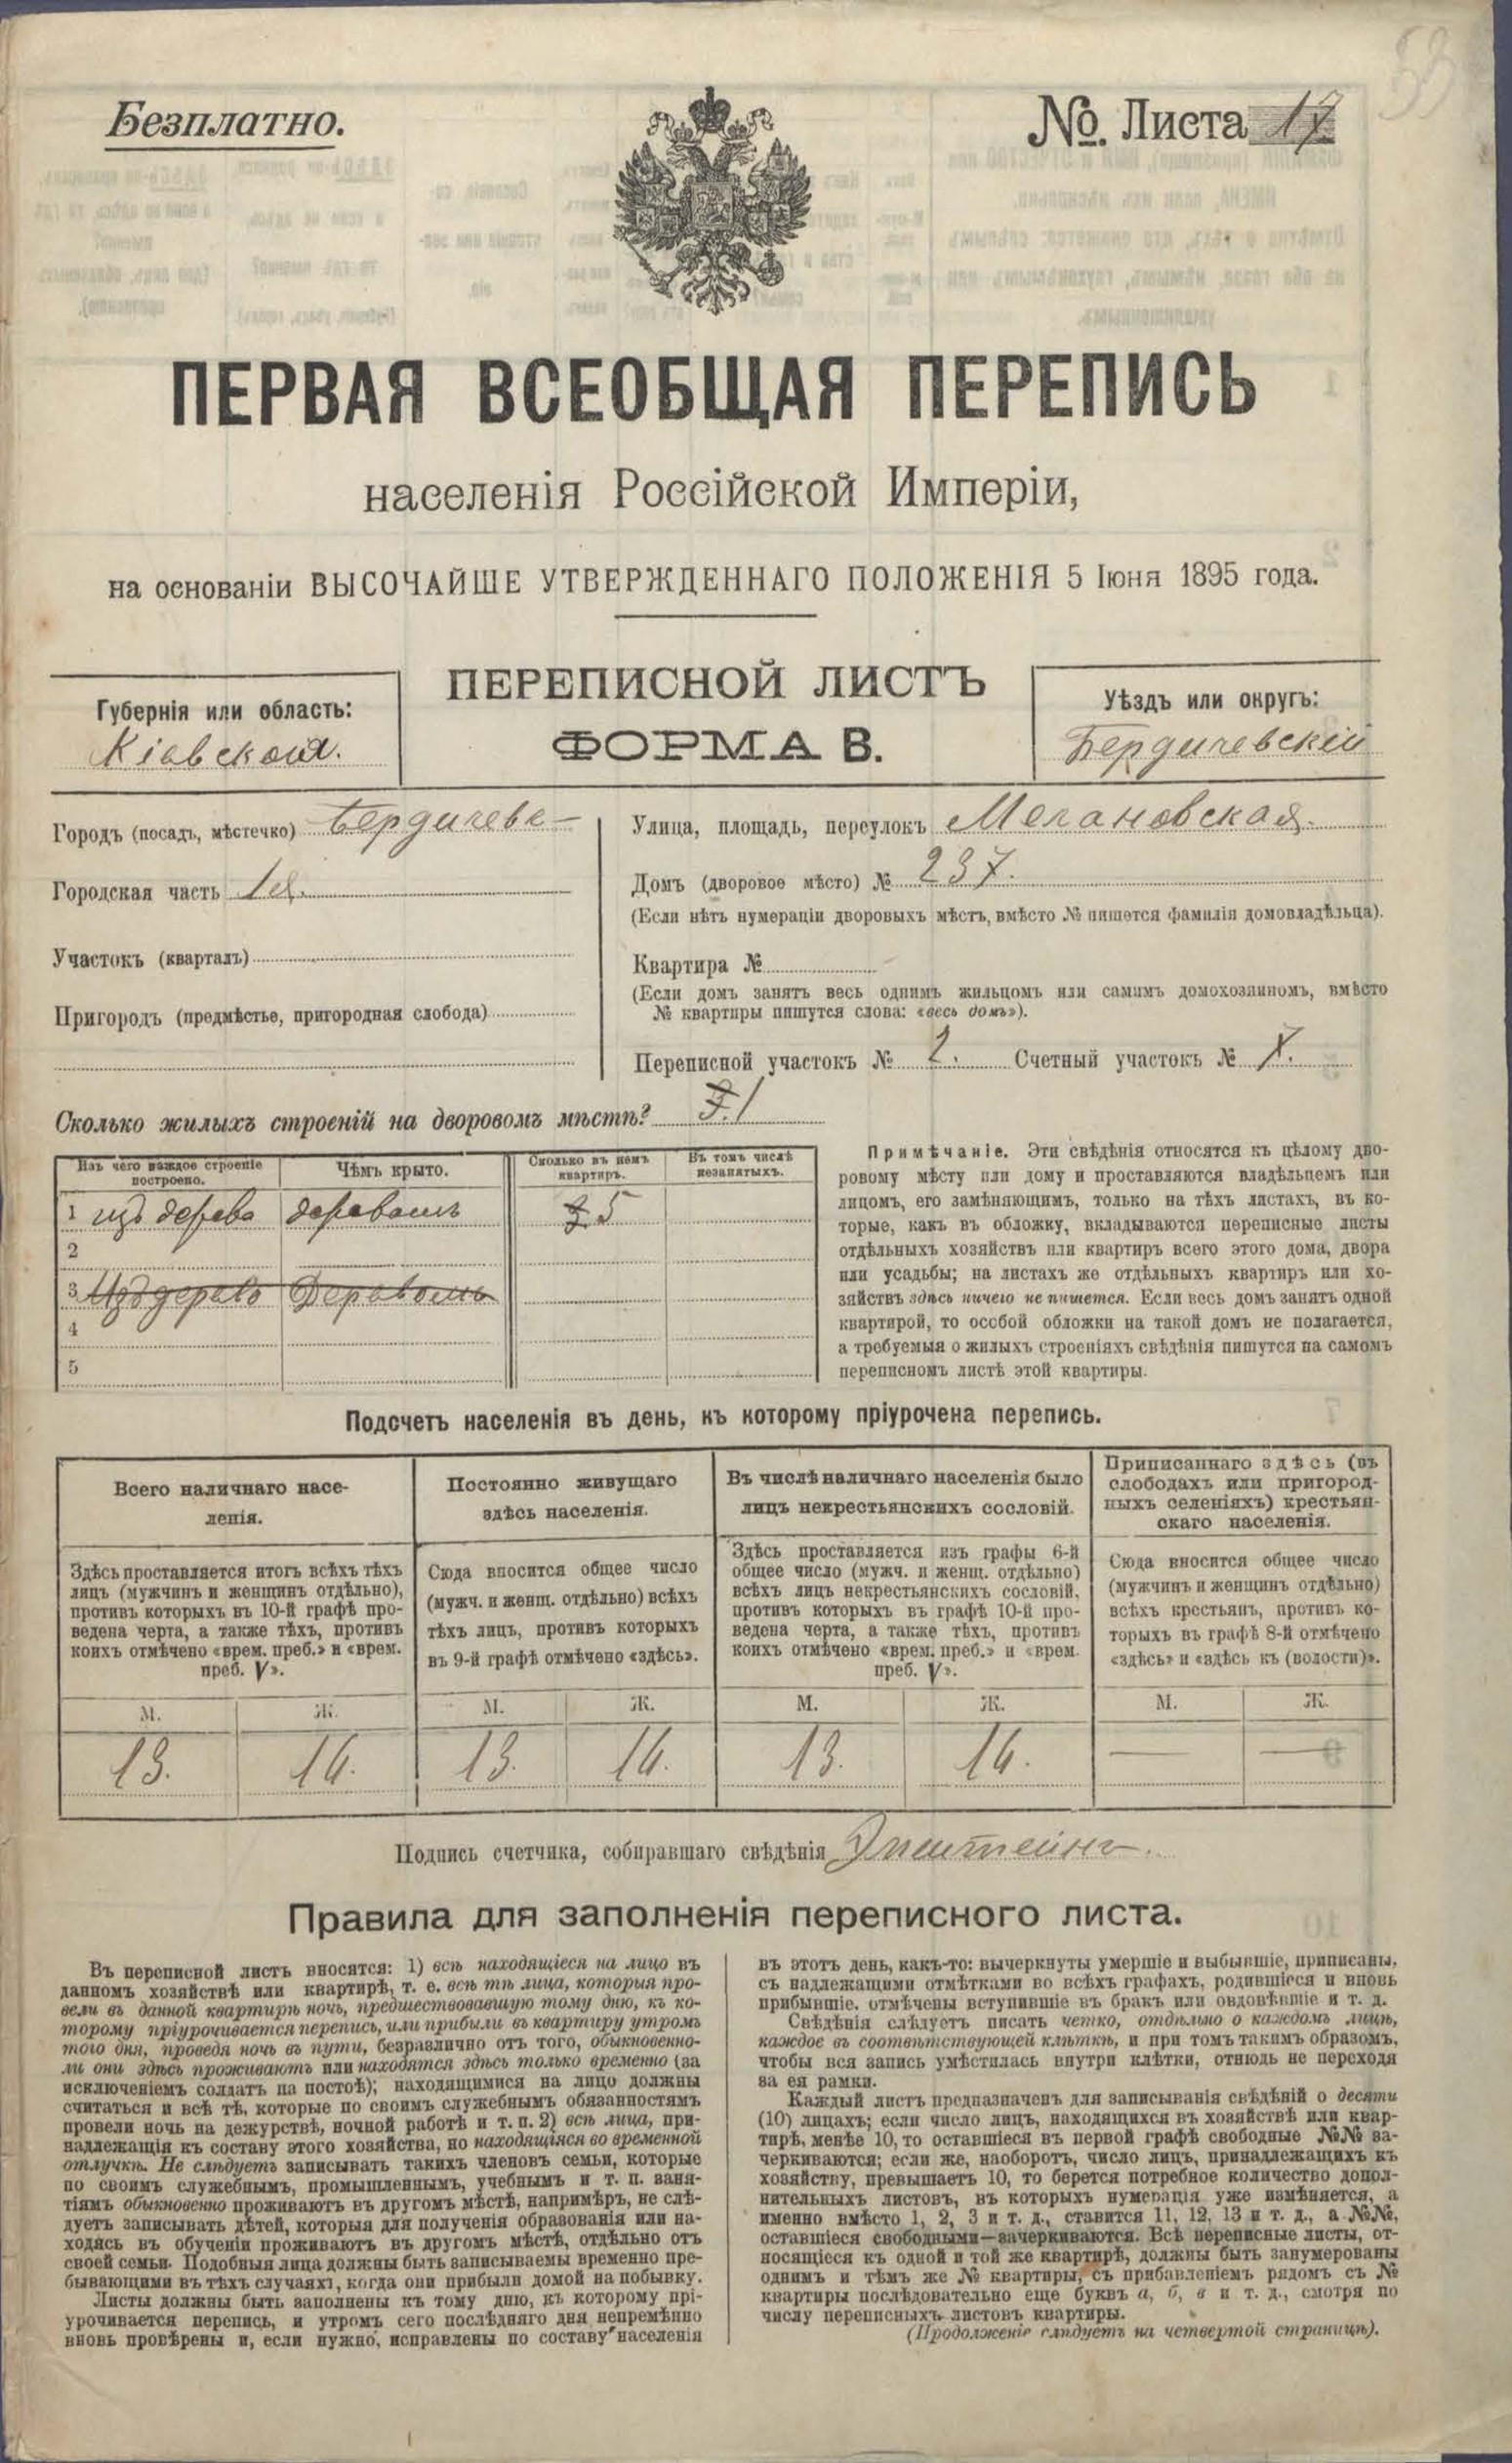 Безплатно.
№. Листа 17
ПЕРВАЯ ВСЕОБЩАЯ ПЕРЕПИСЬ
населенія Россійской Имперіи,
на основаніи ВЫСОЧАЙШЕ УТВЕРЖДЕННАГО ПОЛОЖЕНІЯ 5 Іюня 1895 года.
Губернія или область:
Кіевская.
ПЕРЕПИСНОЙ ЛИСТЪ
ФОРМА В.
Уѣздъ или округъ:
Бердичевскій
Городъ (посадъ, мѣстечко) Бердичевъ
Городская часть 1я.
Участокъ (кварталъ)
Пригородъ (предмѣстье, пригородная слобода)
Улица, площадь, переулокъ
Домъ (дворовое мѣсто) № 237.
(Если нѣтъ нумераціи дворовыхъ мѣстъ, вмѣсто № пишется фамилія домовладѣльца).
Квартира №
(Если домъ занятъ весь однимъ жильцомъ или самимъ домохозяиномъ, вмѣсто
№ квартиры пишутся слова: «весь домъ»).
Переписной участокъ № 2. Счетный участокъ №
Сколько жилыхъ строеній на дворовомъ мѣстѣ? 1
Изъ чего каждое строеніе
построено.
Чѣмъ крыто.
Сколько въ немъ
квартиръ.
Въ томъ числѣ
незанятыхъ.
1 изъ дерева деревомъ 5
2
3 Изъ дерева Деревомъ
4
5
Примѣчаніе. Эти свѣдѣнія относятся къ цѣлому дво-
ровому мѣсту или дому и проставляются владѣльцемъ или
лицомъ, его замѣняющимъ, только на тѣхъ листахъ, въ ко-
торые, какъ въ обложку, вкладываются переписные листы
отдѣльныхъ хозяйствъ или квартиръ всего этого дома, двора
или усадьбы; на листахъ же отдѣльныхъ квартиръ или хо-
зяйствъ здѣсь ничего не пишется. Если весь домъ занятъ одной
квартирой, то особой обложки на такой домъ не полагается,
а требуемыя о жилыхъ строеніяхъ свѣдѣнія пишутся на самомъ
переписномъ листѣ этой квартиры.
Подсчетъ населенія въ день, къ которому пріурочена перепись.
Всего наличнаго насе-
ленія.
Здѣсь проставляется итогъ всѣхъ тѣхъ
лицъ (мужчинъ и женщинъ отдѣльно),
противъ которыхъ въ 10-й графѣ про-
ведена черта, а также тѣхъ, противъ
коихъ отмѣчено «врем. преб.» и «врем.
преб. V».
Постоянно живущаго
здѣсь населенія.
Сюда вносится общее число
(мужч. и женщ. отдѣльно) всѣхъ
тѣхъ лицъ, противъ которыхъ
въ 9-й графѣ отмѣчено «здѣсь».
Въ числѣ наличнаго населенія было
лицъ некрестьянскихъ сословій.
Здѣсь проставляется изъ графы 6-й
общее число (мужч. и женщ. отдѣльно)
всѣхъ лицъ некрестьянскихъ сословій,
противъ которыхъ въ графѣ 10-й про-
ведена черта, а также тѣхъ, противъ
коихъ отмѣчено «врем. преб.» и «врем.
преб. V».
Приписаннаго здѣсь (въ
слободахъ или пригород-
ныхъ селеніяхъ) крестьян-
скаго населенія.
Сюда вносится общее число
(мужчинъ и женщинъ отдѣльно)
всѣхъ крестьянъ, противъ ко-
торыхъ въ графѣ 8-й отмѣчено
«здѣсь» и «здѣсь къ (волости)».
М. Ж. М. Ж. М. Ж. М. Ж.
13. 14. 13. 14. 13. 14. — —
Подпись счетчика, собиравшаго свѣдѣнія Эпштейнъ.
Правила для заполненія переписного листа.
Въ переписной листъ вносятся: 1) всѣ находящіеся на лицо въ
данномъ хозяйствѣ или квартирѣ, т. е. всѣ тѣ лица, которыя про-
вели въ данной квартирѣ ночь, предшествовавшую тому дню, къ ко-
торому пріурочивается перепись, или прибыли въ квартиру утромъ
того дня, проведя ночь въ пути, безразлично отъ того, обыкновенно-
ли они здѣсь проживаютъ или находятся здѣсь только временно (за
исключеніемъ солдатъ на постоѣ); находящимися на лицо должны
считаться и всѣ тѣ, которые по своимъ служебнымъ обязанностямъ
провели ночь на дежурствѣ, ночной работѣ и т. п. 2) всѣ лица, при-
надлежащія къ составу этого хозяйства, но находящіяся во временной
отлучкѣ. Не слѣдуетъ записывать такихъ членовъ семьи, которые
по своимъ служебнымъ, промышленнымъ, учебнымъ и т. п. заня-
тіямъ обыкновенно проживаютъ въ другомъ мѣстѣ, напримѣръ, не слѣ-
дуетъ записывать дѣтей, которыя для полученія образованія или на-
ходясь въ обученіи проживаютъ въ другомъ мѣстѣ, отдѣльно отъ
своей семьи. Подобныя лица должны быть записываемы временно пре-
бывающими въ тѣхъ случаяхъ, когда они прибыли домой на побывку.
Листы должны быть заполнены къ тому дню, къ которому прі-
урочивается перепись, и утромъ сего послѣдняго дня непремѣнно
вновь провѣрены и, если нужно, исправлены по составу населенія
въ этотъ день, какъ-то: вычеркнуты умершіе и выбывшіе, приписаны,
съ надлежащими отмѣтками во всѣхъ графахъ, родившіеся и вновь
прибывшіе, отмѣчены вступившіе въ бракъ или овдовѣвшіе и т. д.
Свѣдѣнія слѣдуетъ писать четко, отдѣльно о каждомъ лицѣ,
каждое въ соотвѣтствующей клѣткѣ, и при томъ такимъ образомъ,
чтобы вся запись умѣстилась внутри клѣтки, отнюдь не переходя
за ея рамки.
Каждый листъ предназначенъ для записыванія свѣдѣній о десяти
(10) лицахъ; если число лицъ, находящихся въ хозяйствѣ или квар-
тирѣ, менѣе 10, то оставшіеся въ первой графѣ свободные №№ за-
черкиваются; если же, наоборотъ, число лицъ, принадлежащихъ къ
хозяйству, превышаетъ 10, то берется потребное количество допол-
нительныхъ листовъ, въ которыхъ нумерація уже измѣняется, а
именно вмѣсто 1, 2, 3 и т. д., ставится 11, 12, 13 и т. д., а №№,
оставшіеся свободными—зачеркиваются. Всѣ переписные листы, от-
носящіеся къ одной и той же квартирѣ, должны быть занумерованы
однимъ и тѣмъ же № квартиры, съ прибавленіемъ рядомъ съ №
квартиры послѣдовательно еще буквъ а, б, в и т. д., смотря по
числу переписныхъ листовъ квартиры.
(Продолженіе слѣдуетъ на четвертой страницѣ).